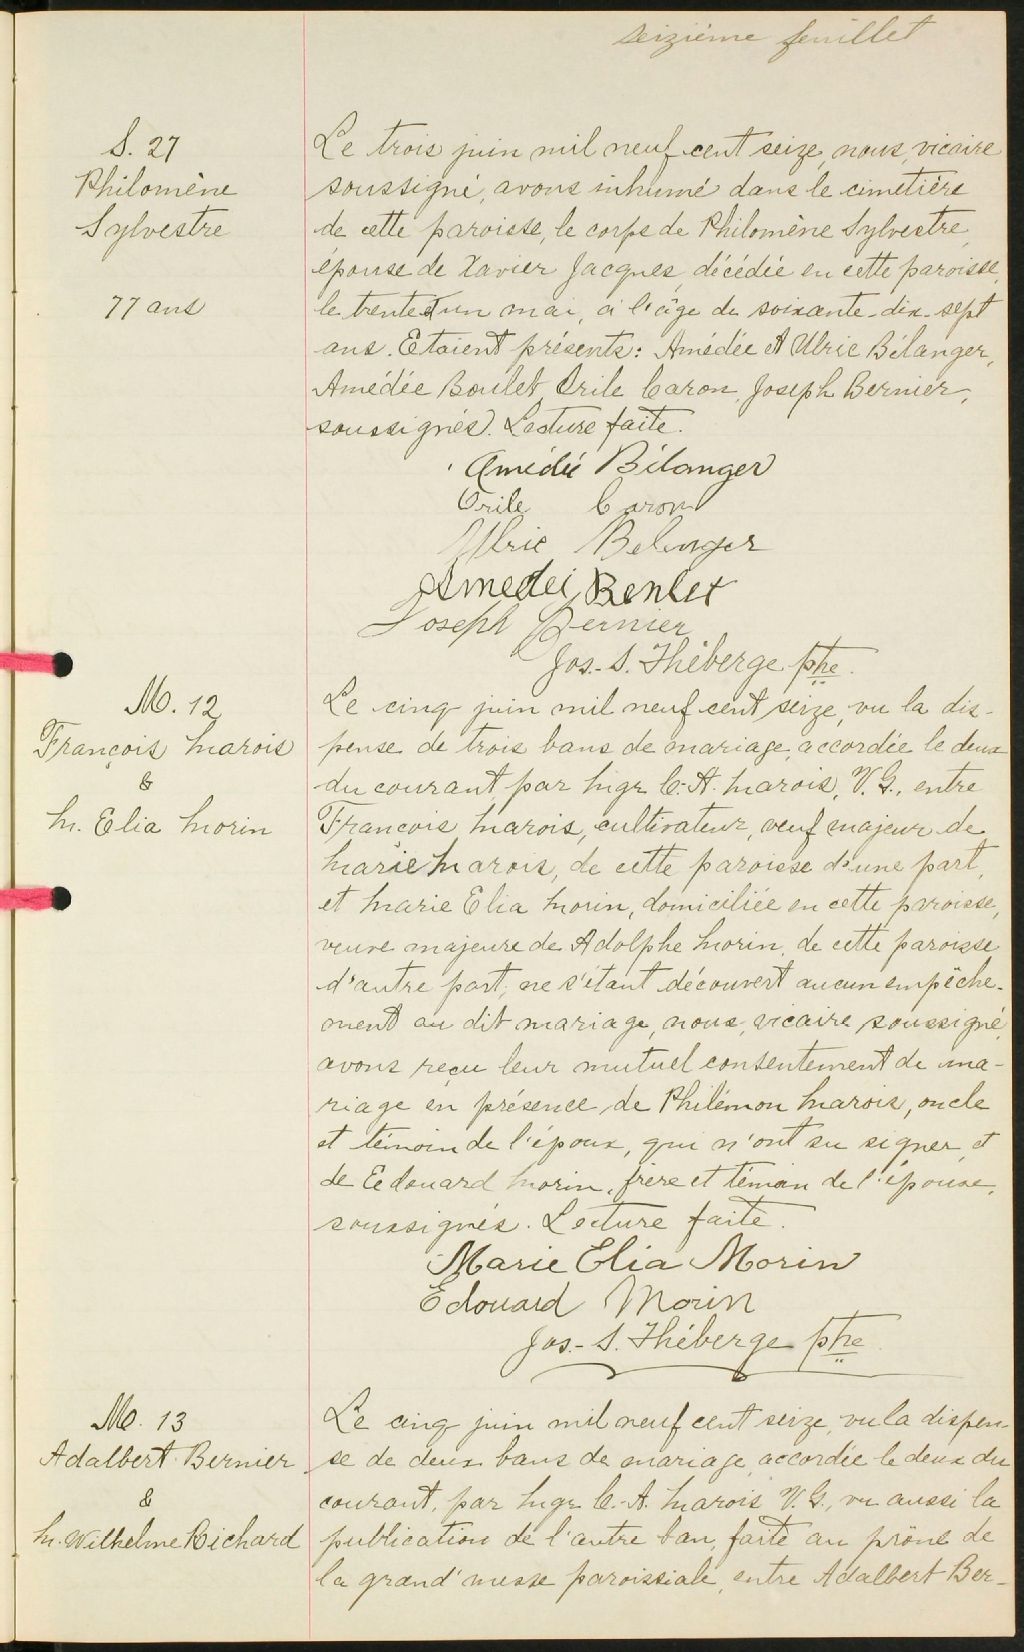 seizième feuillet
S. 27
Philomène
Sylvestre
77 ans
Le trois juin mil neuf cent seize, nous, vicaire
soussigné, avons inhumé dans le cimetière
de cette paroisse, le corps de Philomène Sylvestre,
épouse de Xavier Jacques, décédée en cette paroisse,
le trente et un mai, à l'âge de soixante-dix-sept
ans. Etaient présents: Amédée et Ulric Bélanger,
Amédée Boulet, Orile Caron, Joseph Bernier,
soussignés. Lecture faite.
Amédée Bélanger
Orile Caron
Ulric Belanger
Amedei Bonlet
Joseph Bernier
Jos.-S. Théberge ptre.
M. 12
François Marois
&
M. Elia Morin
Le cinq juin mil neuf cent seize, vu la dis-
pense de trois bans de mariage, accordée le deux
du courant, par Mgr C.-A. Marois, V.G., entre
François Marois, cultivateur, veuf majeur de
Marie Marois, de cette paroisse d'une part,
et Marie Elia Morin, domiciliée en cette paroisse,
veuve majeure de Adolphe Morin, de cette paroisse
d'autre part; ne s'étant découvert aucun empêche-
ment au dit mariage, nous, vicaire soussigné,
avons reçu leur mutuel consentement de ma-
riage en présence de Philémon Marois, oncle
et témoin de l'époux, qui n'ont su signer, et
de Edouard Morin, frère et témoin de l'épouse,
soussignés. Lecture faite.
Marie Elia Morin
Edouard Morin
Jos.-S. Théberge ptre
M. 13
Adalbert Bernier
&
M. Wilhelme Richard
Le cinq juin mil neuf cent seize, vu la dispen-
se de deux bans de mariage, accordée le deux du
courant, par Mgr C.-A. Marois V.G., vu aussi la
publication de l'autre ban, faite au prône de
la grand'messe paroissiale, entre Adalbert Ber-